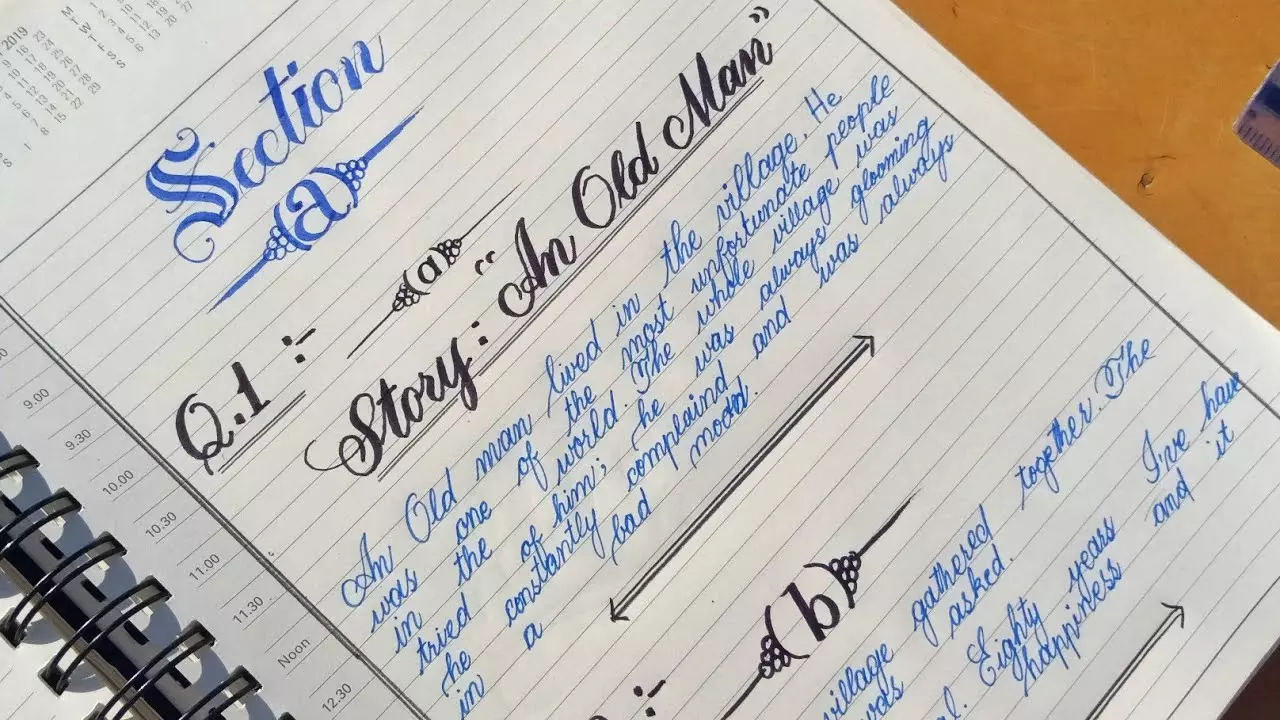 2019
Section
(a)
(a)
Q.1 :-
Story : "An Old Man"
An Old man lived in the village. He
was one of the most unfortunate people
in the world. The whole village was
tried of him; he was always glooming
he constantly complaind and was always
in a bad mood.
(b)
:-
village gathered together. The
asked.
Eighty years I've have
happiness and it
9.00
9.30
10.00
10.30
11.00
11.30
Noon
12.30